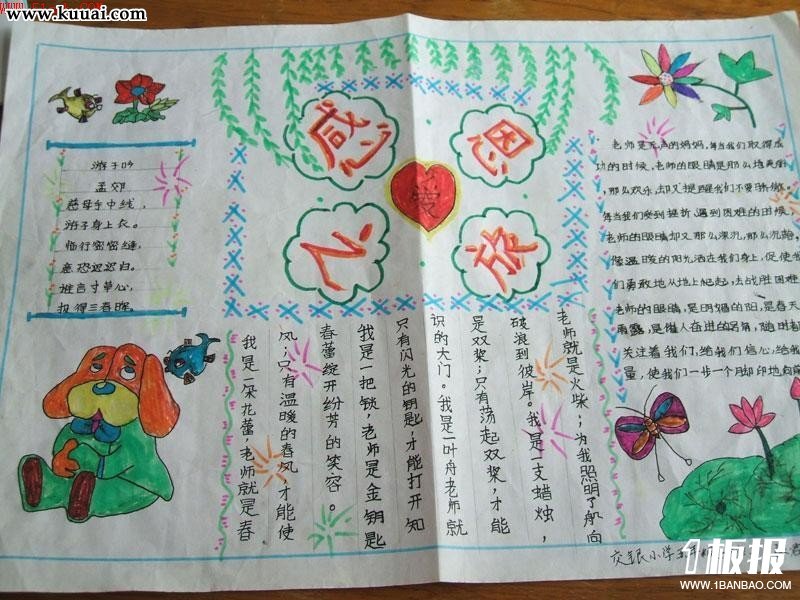 www.kuuai.com
感恩
欣
愛
游子吟
孟郊
慈母手中线，
游子身上衣。
临行密密缝，
意恐迟迟归。
谁言寸草心，
报得三春晖。
我是一朵花蕾，老师就是春
风；只有温暖的春风，才能使
春蕾绽开纷芳的笑容。
我是一把锁，老师是金钥匙
只有闪光的钥匙，才能打开知
识的大门。我是一叶舟老师就
是双桨；只有荡起双桨，才能
破浪到彼岸。我是一支蜡烛，
老师就是火柴；为我照明了航向
老师是无声的妈妈，每当我们取得成
功的时候，老师的眼睛是那么地美丽
那么欢乐，却又提醒我们不要骄傲。
每当我们受到挫折，遇到困难的时候，
老师的眼睛却又那么深沉，那么沉静。
像温暖的阳光洒在我们身上，促使我
们勇敢地从地上爬起，去战胜困难
老师的眼睛，是明媚的阳，是春天
雨露，是催人奋进的号角，随时都
关注着我们，给我们信心，给我
量，使我们一步一个脚印地向前
交银小学
1板报
WWW.1BANBAO.COM